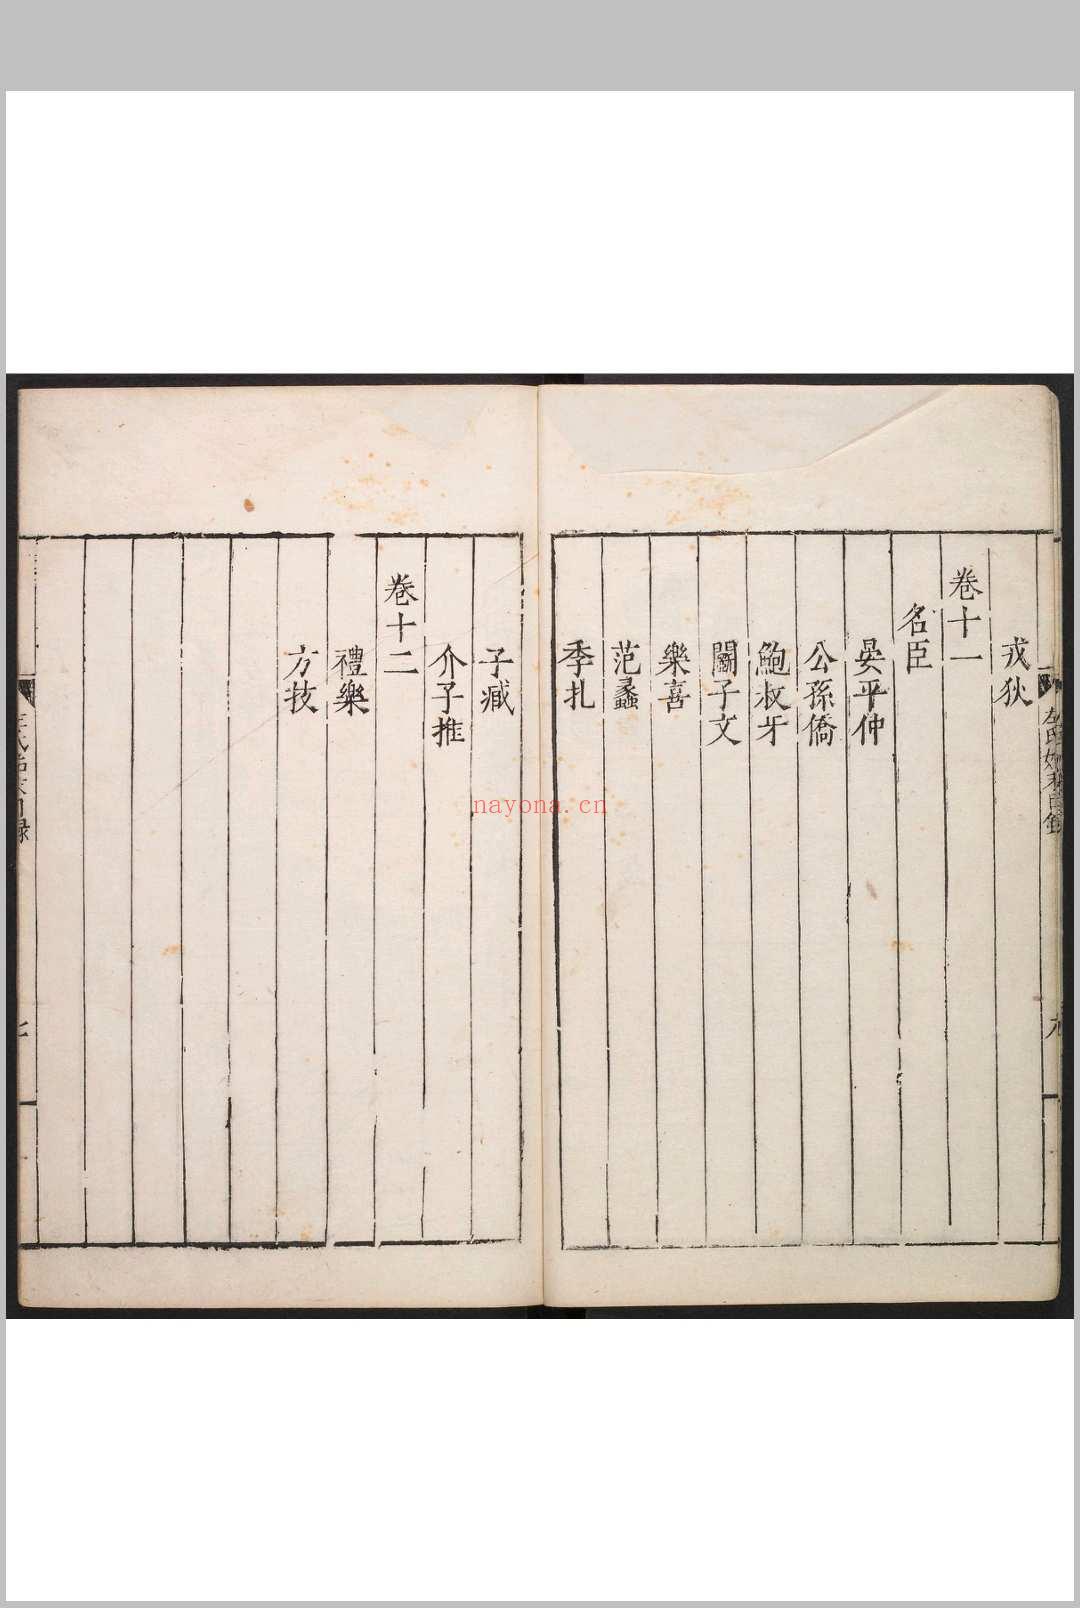 左氏始末目錄
戎狄
卷十一
名臣
晏平仲
公孫僑
鮑叔牙
鬭子文
樂喜
范蠡
季扎
子臧
介子推
卷十二
禮樂
方技
nayona.cn